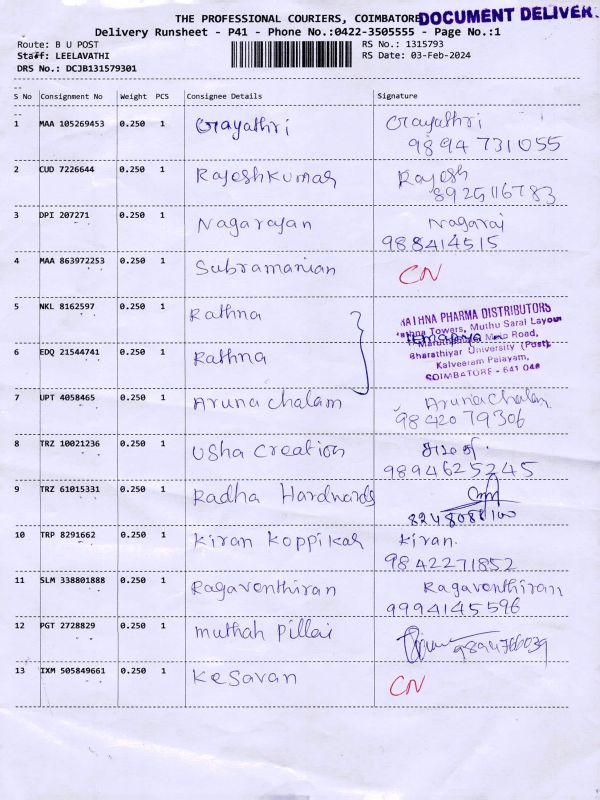 THE PROFESSIONAL COURIERS, COIMBATORE DOCUMENT DELIVER
Delivery Runsheet - P41 - Phone No.:0422-3505555 - Page No.:1
Route: B U POST
Staff: LEELAVATHI
DRS No.: DCJB131579301
RS No.: 1315793
RS Date: 03-Feb-2024
S No Consignment No Weight PCS Consignee Details Signature
1 MAA 105269453 0.250 1 Gayathri Gayathri
9894731055
2 CUD 7226644 0.250 1 Rajeshkumar Rajesh
8925116783
3 DPI 207271 0.250 1 Nagarajan Nagaraj
988414515
4 MAA 863972253 0.250 1 Subramanian CN
5 NKL 8162597 0.250 1 Rathna
6 EDQ 21544741 0.250 1 Rathna
RATHNA PHARMA DISTRIBUTORS
Rathna Towers, Muthu Sarai Layout
Main Road,
Bharathiyar University (Post),
Kalveeram Palayam,
COIMBATORE - 641 046
7 UPT 4058465 0.250 1 Arunachalam Arunachalam
9842079306
8 TRZ 10021236 0.250 1 Usha Creation
9894625245
9 TRZ 61015331 0.250 1 Radha Hardwards
8248088100
10 TRP 8291662 0.250 1 Kiran Koppikar Kiran.
9842271852
11 SLM 338801888 0.250 1 Ragaventhiran Ragaventhiran
9994145596
12 PGT 2728829 0.250 1 Muthah Pillai
9894766039
13 IXM 505849661 0.250 1 Kesavan CN